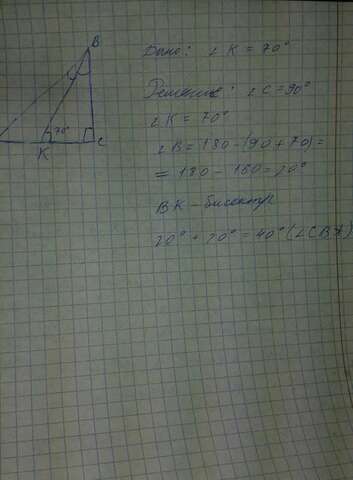 B
Дано: ∠K = 70°
Решение: ∠C = 90°
70°
K
C
∠K = 70°
∠B = 180 - (90 + 70) =
= 180 - 160 = 20°
BK - бисектр
20° + 20° = 40° (∠CB